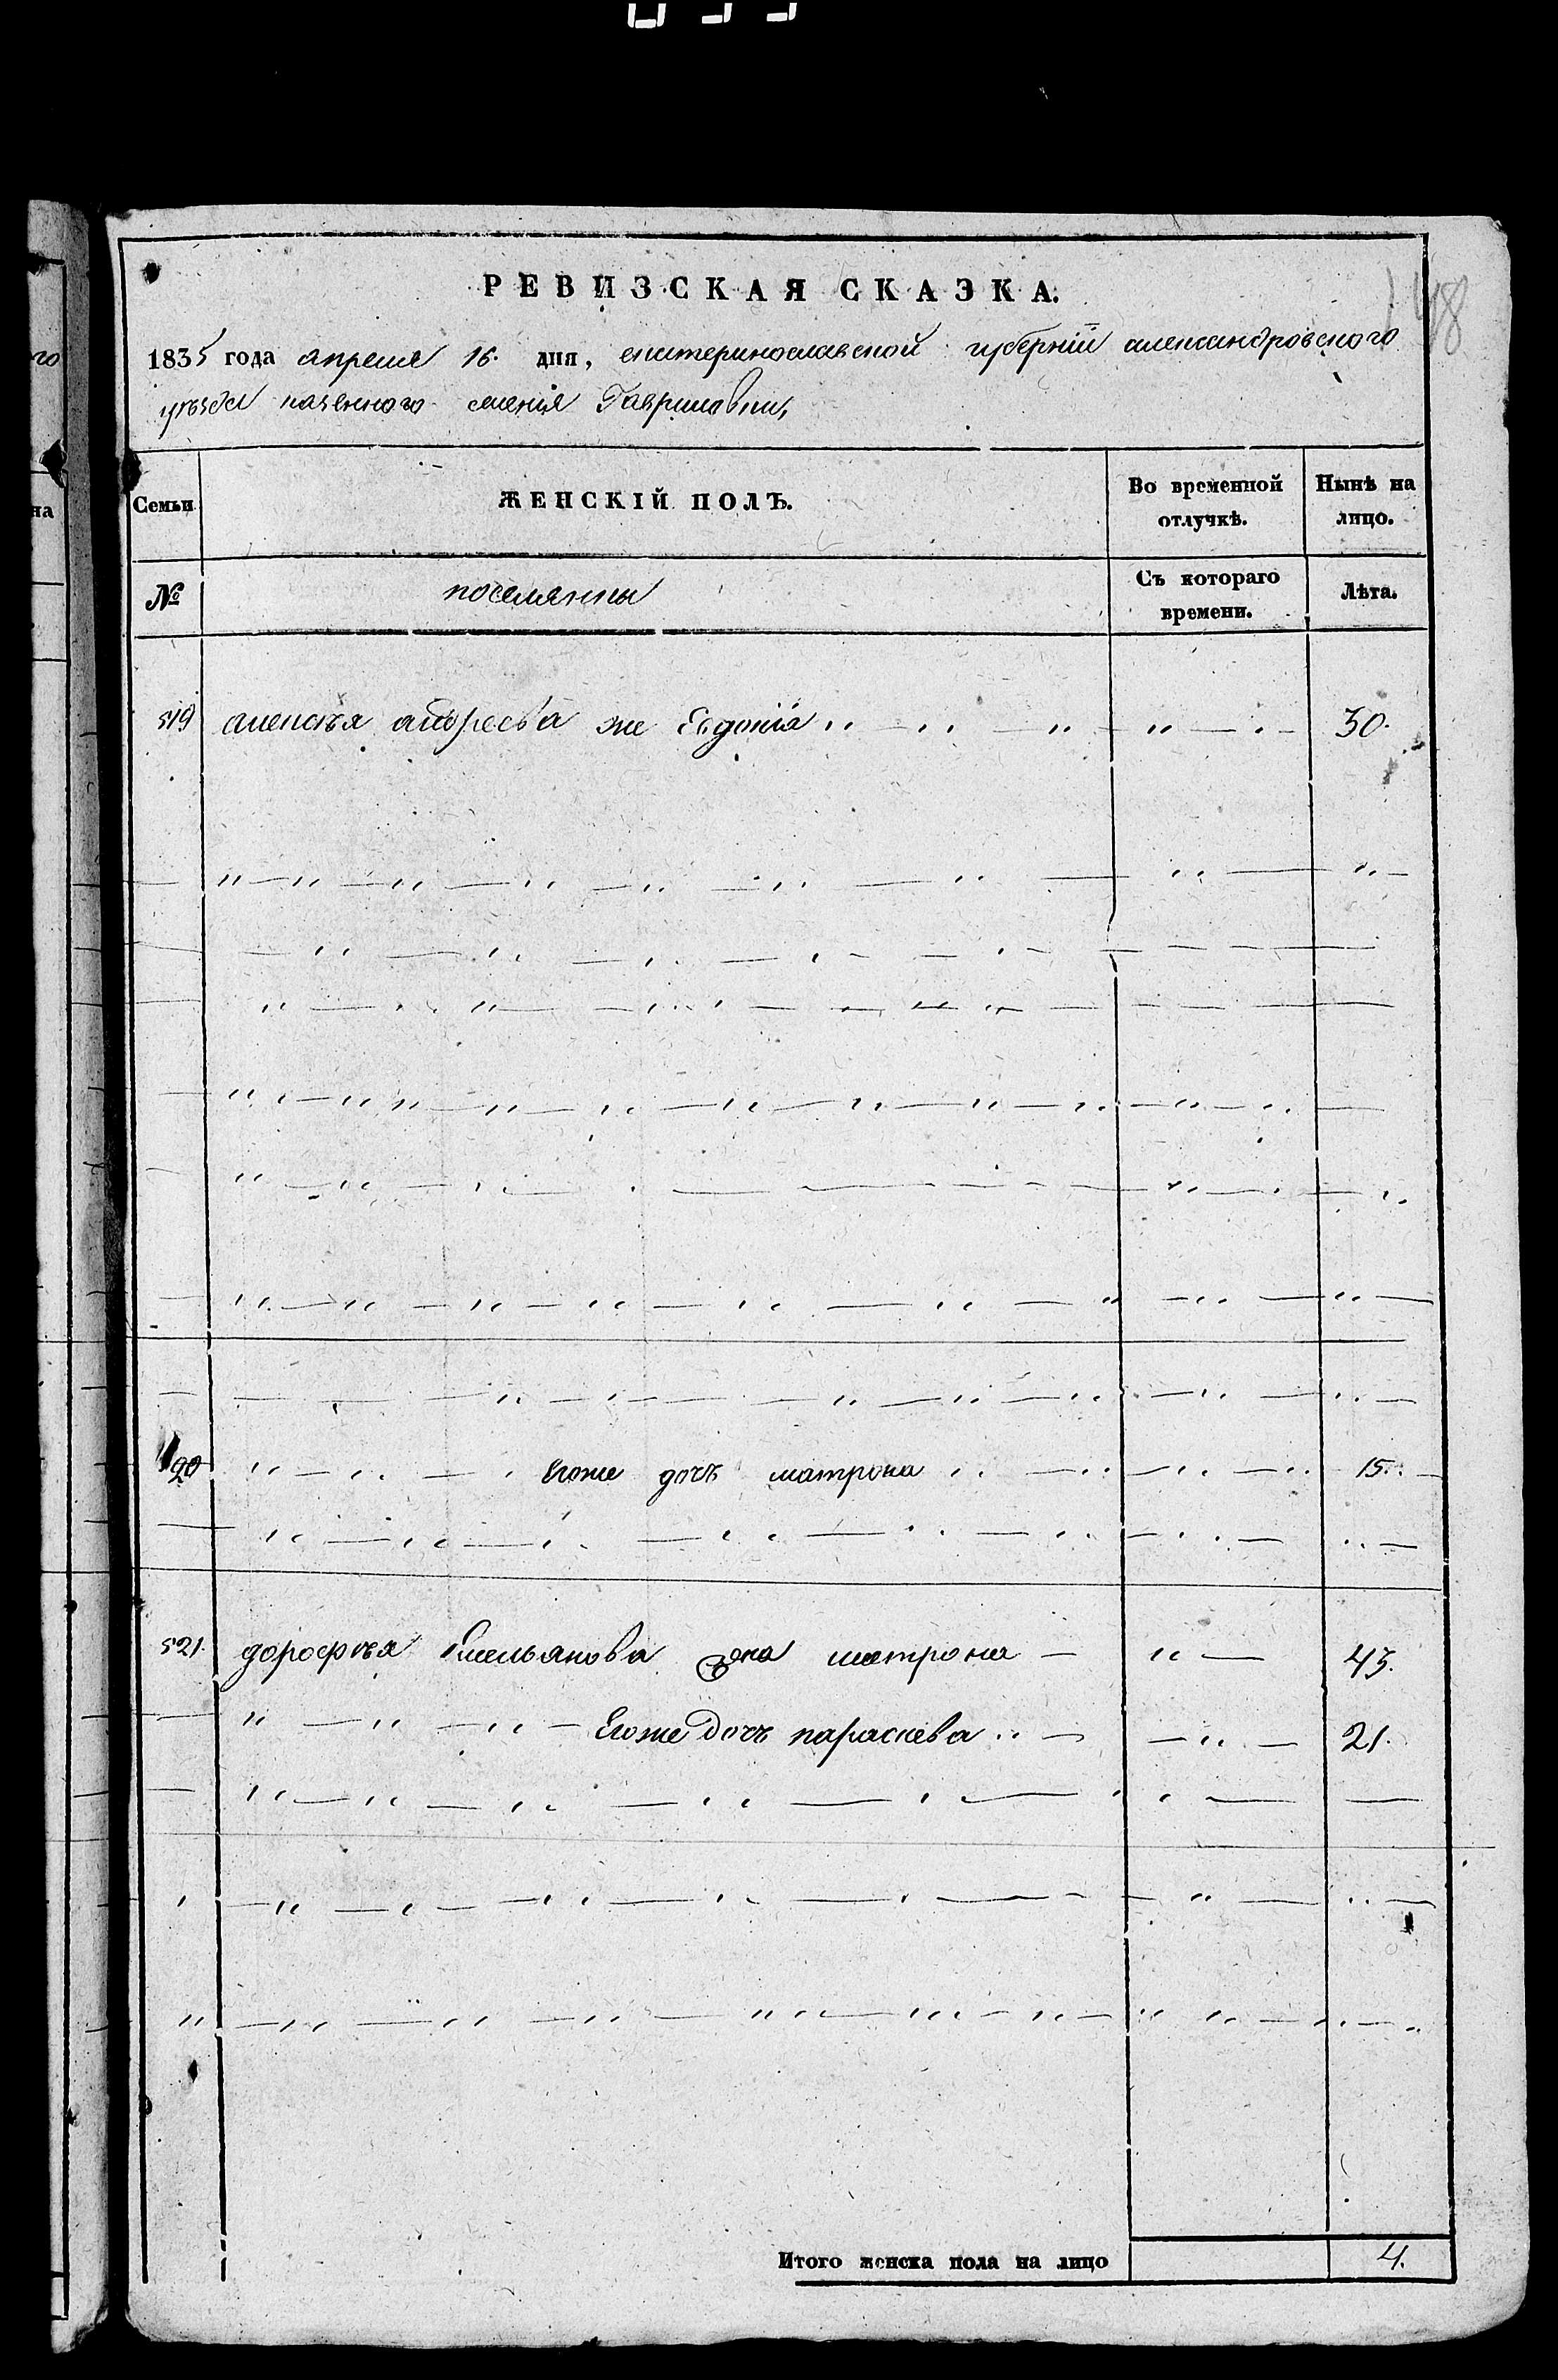 148
РЕВИЗСКАЯ СКАЗКА.
1835 года апреля 16. дня, екатеринославской губернїи александровского
уѣзда казенного селенія Гавриловки,
Семьи
ЖЕНСКІЙ ПОЛЪ.
Во временной отлучкѣ.
Нынѣ на лицо.
№
поселянки
Съ котораго времени.
Лѣта.
519 алексѣя андреева же Евдокія 30.
520 Егоже дочь матрона 15.
521. дорофѣя Емельянова жона матрона 43.
Егоже дочь параскева 21.
Итого женска пола на лицо 4.